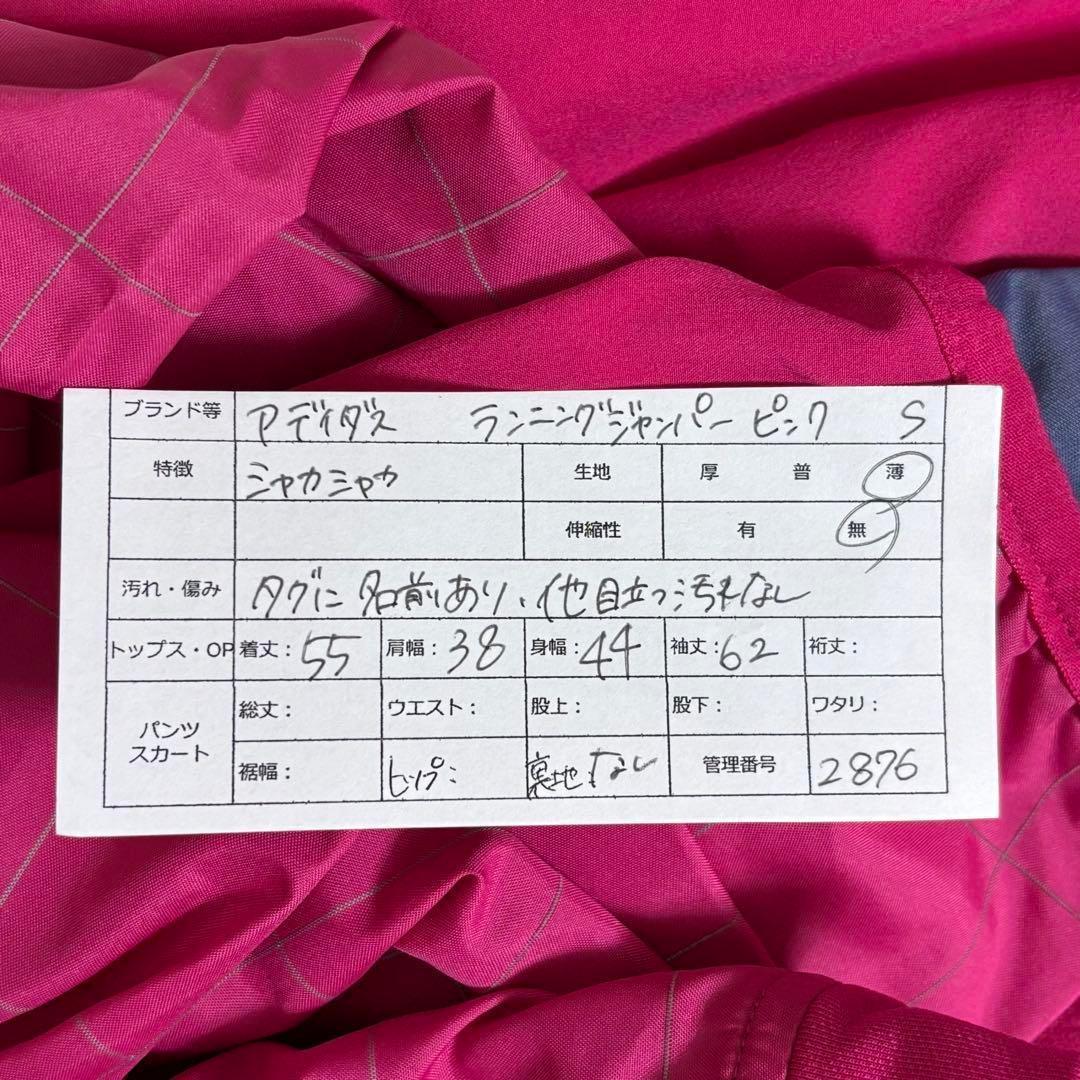 ブランド等 アディダス ランニングジャンパー ピンク S
特徴 シャカシャカ 生地 厚 普 薄
伸縮性 有 無
汚れ・傷み タグに名前あり、他目立つ汚れなし
トップス・OP 着丈：55 肩幅：38 身幅：44 袖丈：62 裄丈：
パンツ
スカート
総丈： ウエスト： 股上： 股下： ワタリ：
裾幅： ヒップ： 裏地：なし 管理番号 2876